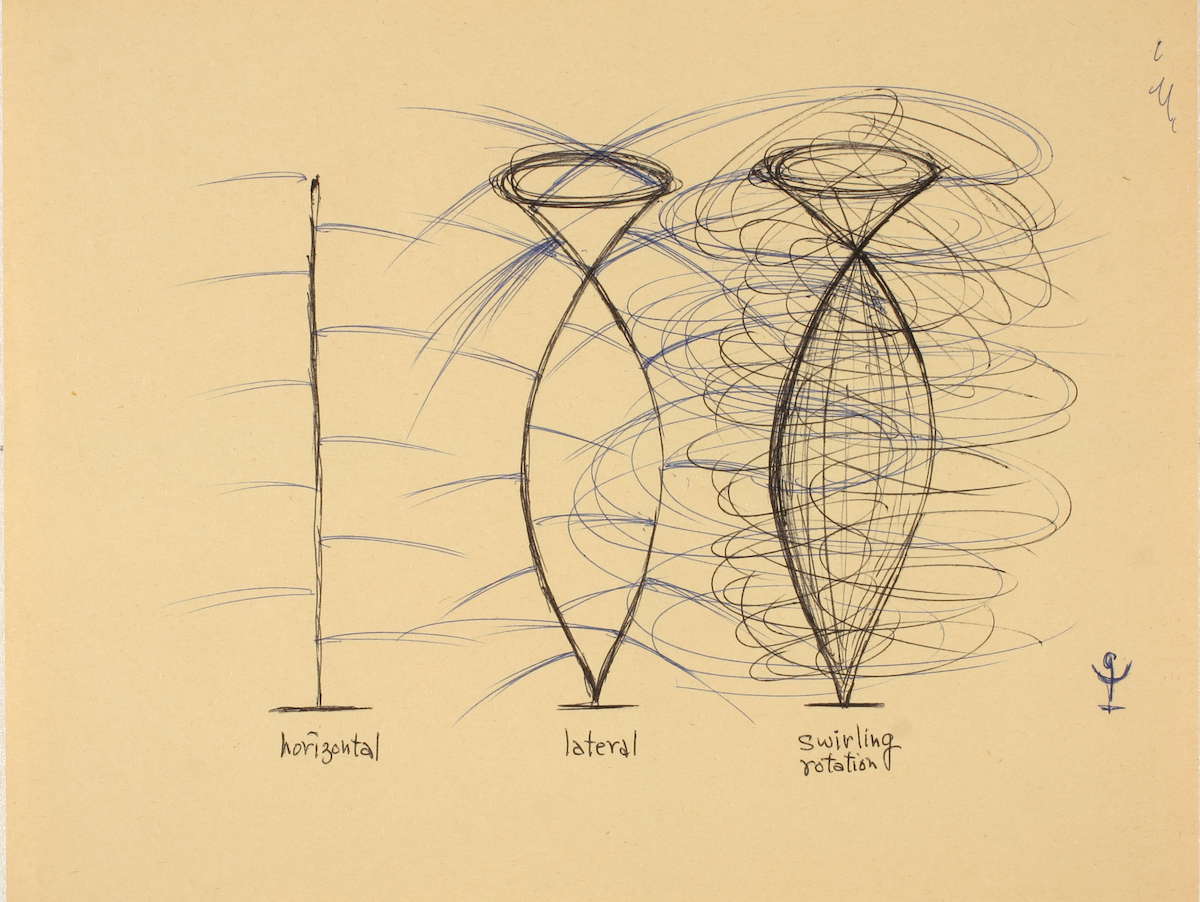 horizontal
lateral
swirling
rotation